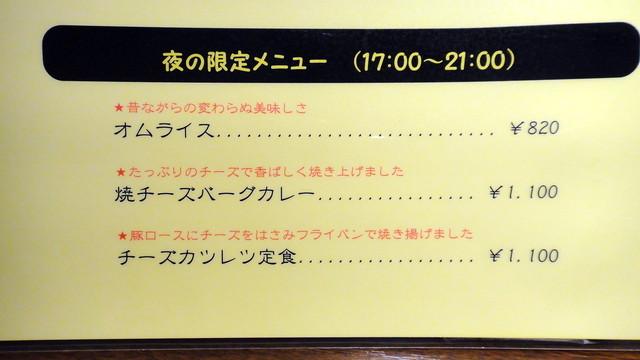 夜の限定メニュー (17:00～21:00)
★昔ながらの変わらぬ美味しさ
オムライス............................ ￥820
★たっぷりのチーズで香ばしく焼き上げました
焼チーズバーグカレー................ ￥1.100
★豚ロースにチーズをはさみフライパンで焼き揚げました
チーズカツレツ定食.................. ￥1.100